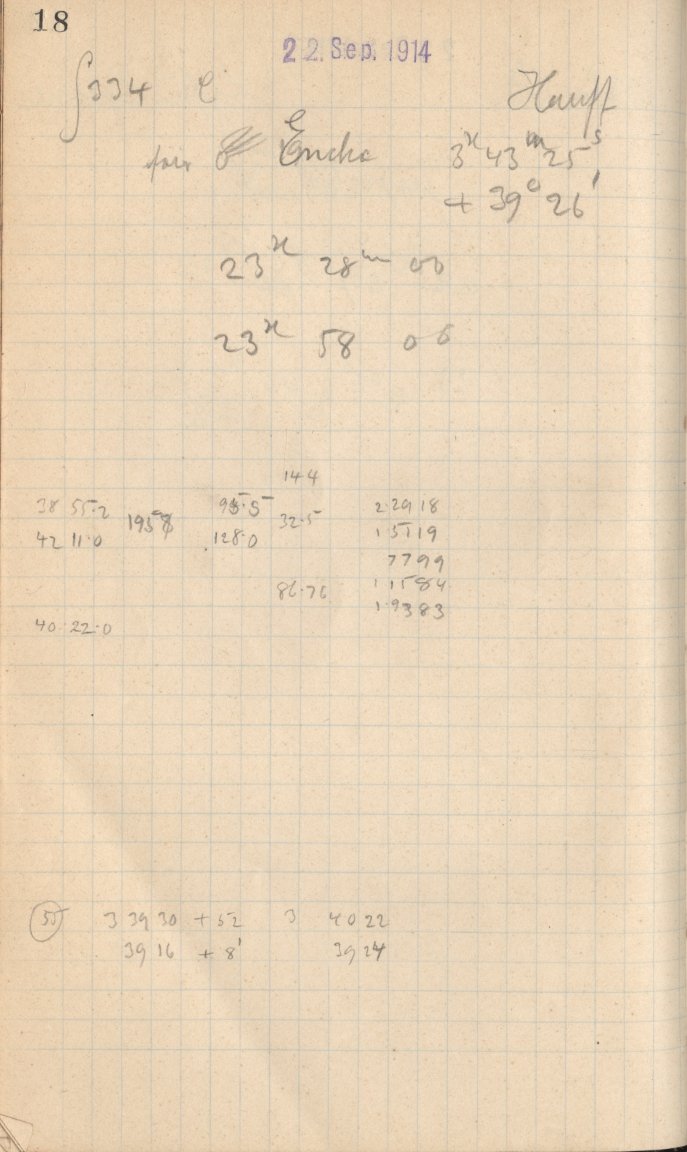 18
22. Sep. 1914
∫334 C Hauff
for Encke 3ʰ 43ᵐ 25ˢ
+ 39° 26'
23ʰ 28ᵐ 00
23ʰ 58 06
144
38 55.2 1958 95.5 32.5 2.2918
42 11.0 128.0 1.5119
7799
86.76 1.1584
1.9383
40 22.0
55 3 39 30 + 52 3 40 22
39 16 + 8' 39 24